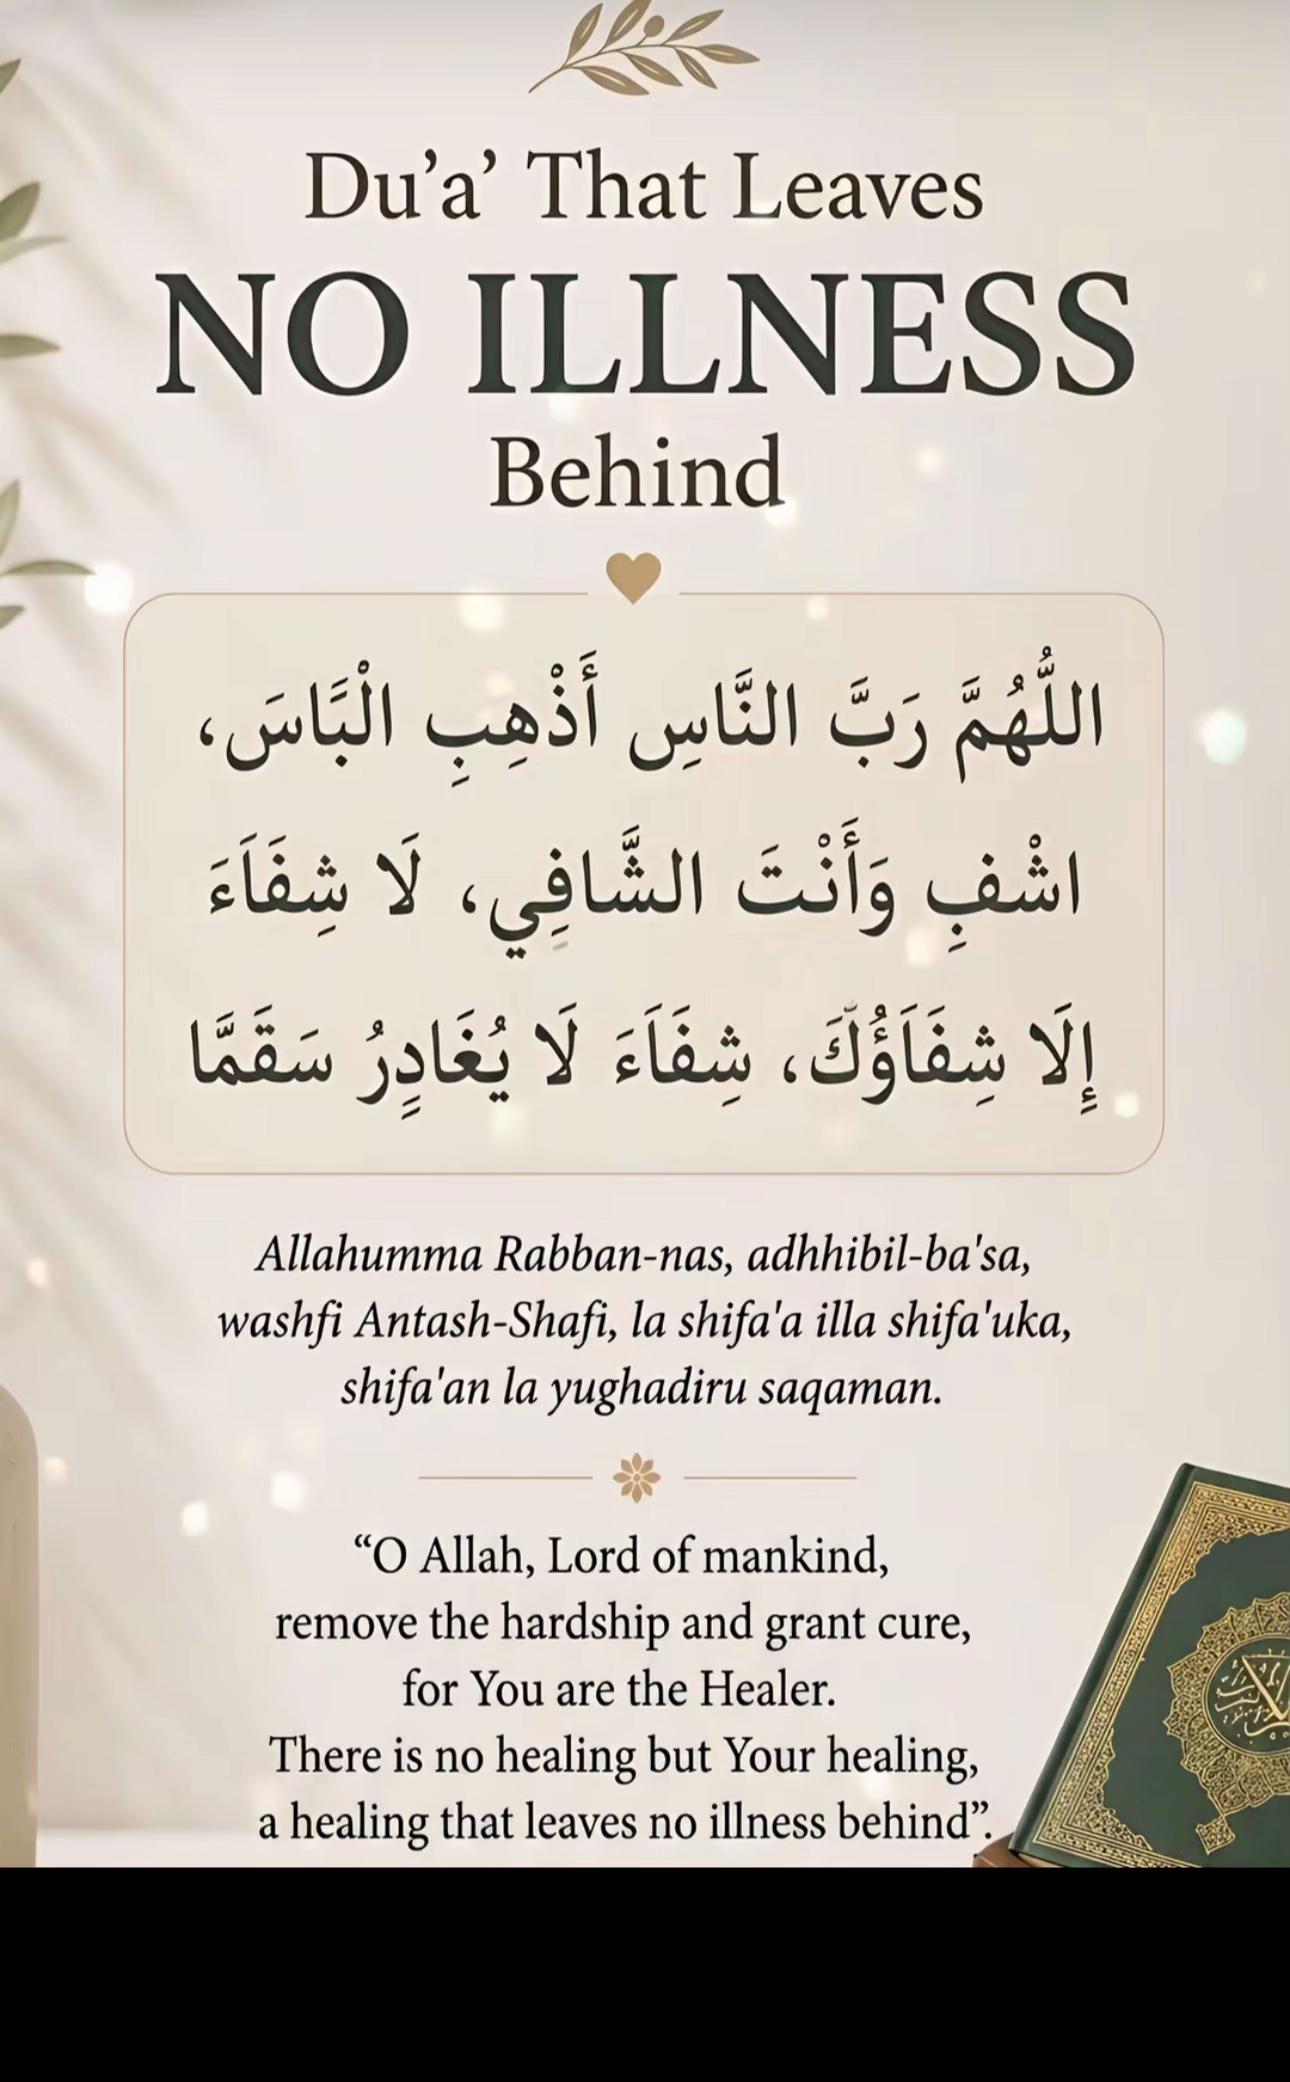 Du’a’ That Leaves
NO ILLNESS
Behind
اللَّهُمَّ رَبَّ النَّاسِ أَذْهِبِ الْبَاسَ،
اشْفِ وَأَنْتَ الشَّافِي، لَا شِفَاءَ
إِلَا شِفَاؤُكَ، شِفَاءَ لَا يُغَادِرُ سَقَمَّا
Allahumma Rabban-nas, adhhibil-ba'sa,
washfi Antash-Shafi, la shifa'a illa shifa'uka,
shifa'an la yughadiru saqaman.
“O Allah, Lord of mankind,
remove the hardship and grant cure,
for You are the Healer.
There is no healing but Your healing,
a healing that leaves no illness behind”.